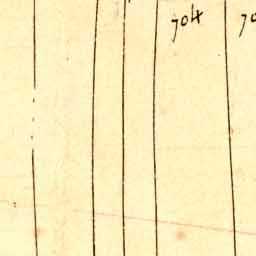 704 70